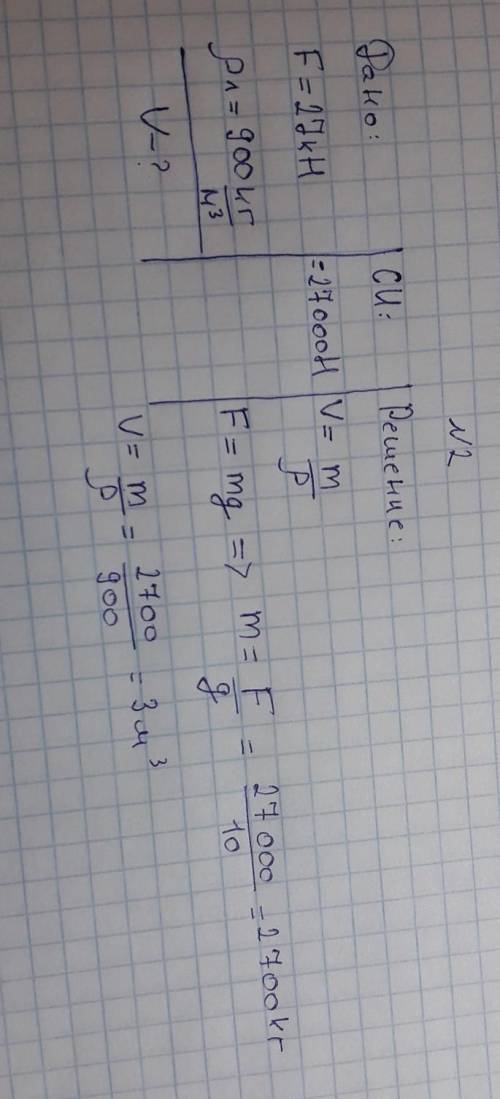 N2
Дано:
F = 27кН
ρл = 900 кг/м³
V-?
СИ:
=27000Н
Решение:
V = m/ρ
F = mg => m = F/g = 27000/10 = 2700кг
V = m/ρ = 2700/900 = 3м³